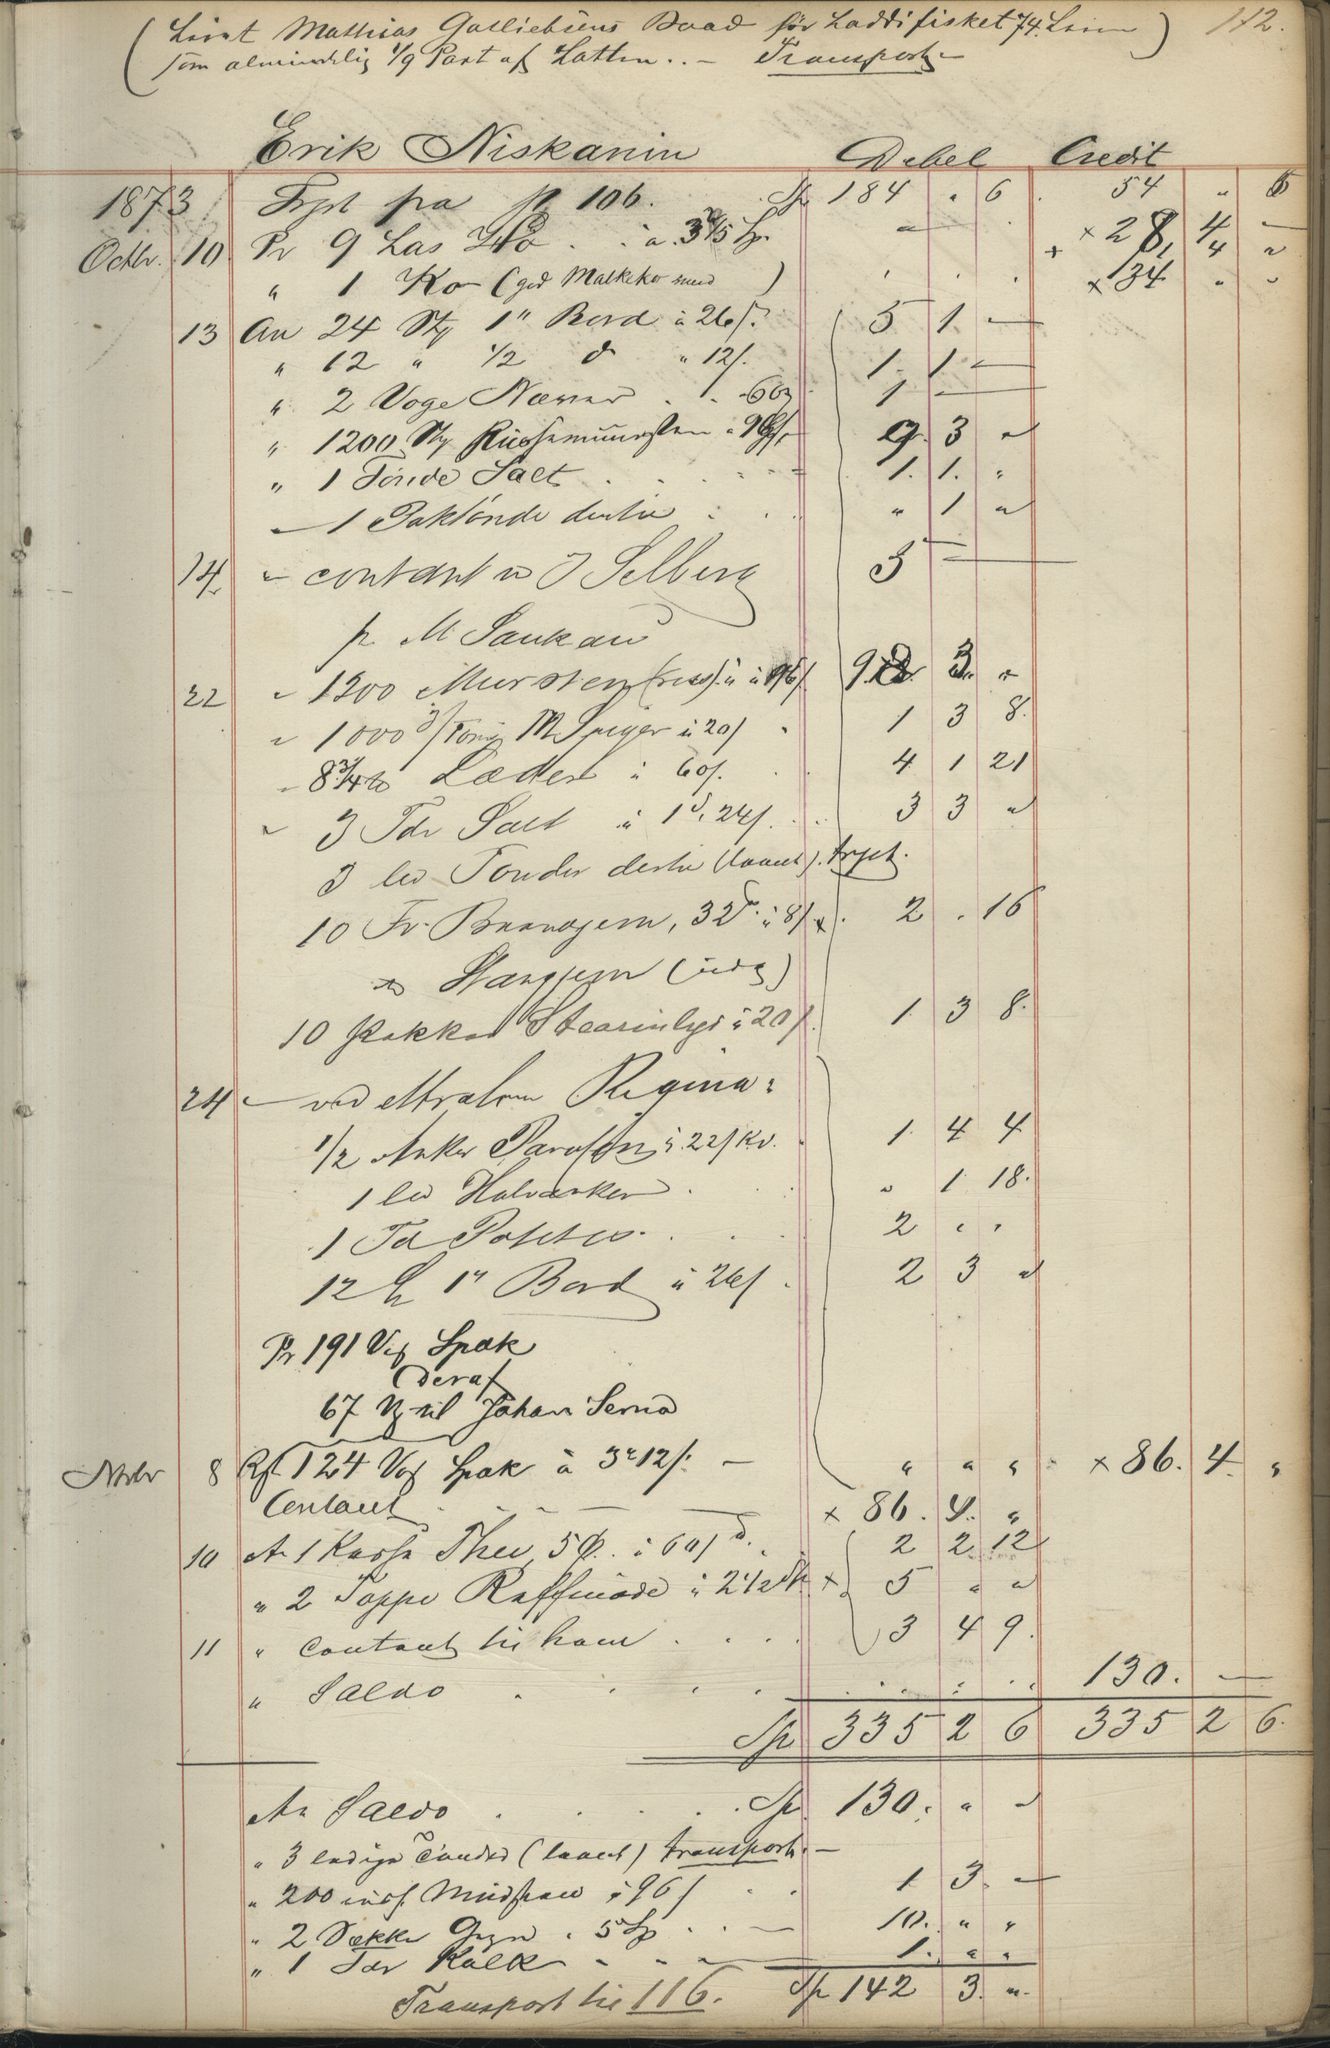 (Lånt Mathias Gotliebsens Baad for Loddefisket 74.
som almindelig 1/9 Part af Lotten. . – Transport
112.
Erik Niskanin Debet Credit
1873 Frpt fra p 106. Sp 184 " 6 54 " 6
Octbr. 10 Pr 9 Las Hø . . a 3 1/5 Sp. " × 28, 4 –
" 1 Ko (god Malkeko ) × 34 " "
13 An 24 Sty 1" Bord à 26/. 5 1 –
" 12 " 1/2 d " 12/. 1 1 –
" 2 Voge Næver . . 60 1 –
" 1200 Sty Russemursten " 96/ 9 3 "
" 1 Tønde Salt . . . 1. 1. "
– 1 Paktønde dertil . . " 1 "
14 " contant v J Selberg 5 –
p. M. Saukan
22 " 1200 Mursten (russ). " à 96/ 9 3 "
" 1000 3/ Toms Spiger à 20/ 1 3 8.
" 8 3/4 Læder à 60/. 4 1 21
" 3 Tdr Salt à 1 d. 24/. 3 3 "
3 led Tønder dertil (laant). trpt.
10 Fv. Baandjern, 32 à 8/ × 2 . 16
Stangjern (udg)
10 Pakker Stearinlys à 20/. 1 3 8.
24 – ved Regina:
1/2 Anker Parafin à 22/ Kd. 1 4 4
1 led Halvanker . " 1 18.
1 Td Poteter. . . 2 " "
12 1" Bord à 26/. 2 3 "
Pr 191 Vog Spæk
(deraf
67 Vog til Johan Serna
Novbr 8 124 Vog Spæk à 3 12/. – " " " × 86. 4. "
Contant . – – × 86. 4. "
10 An 1 Kasse Thee, 5 . à 60/ . 2 2 12
" 2 Toppe Raffinade à 2 1/2 × 5 " "
11 " contant til ham . . . . 3 4 9.
" Saldo . . . . . . . . . 130. –
Sp 335 2 6 335 2 6.
An Saldo . . . . . Sp. 130. " "
" 3 ledige Tønder (laant) transport. –
" 200 russ. Mursten à 96/ . . 1 3. –
" 2 Sække Gryn . 5 Sp . . – 10. " "
" 1 Tdr Kalk – – – 1. " "
Transport til 116. Sp 142 3. "